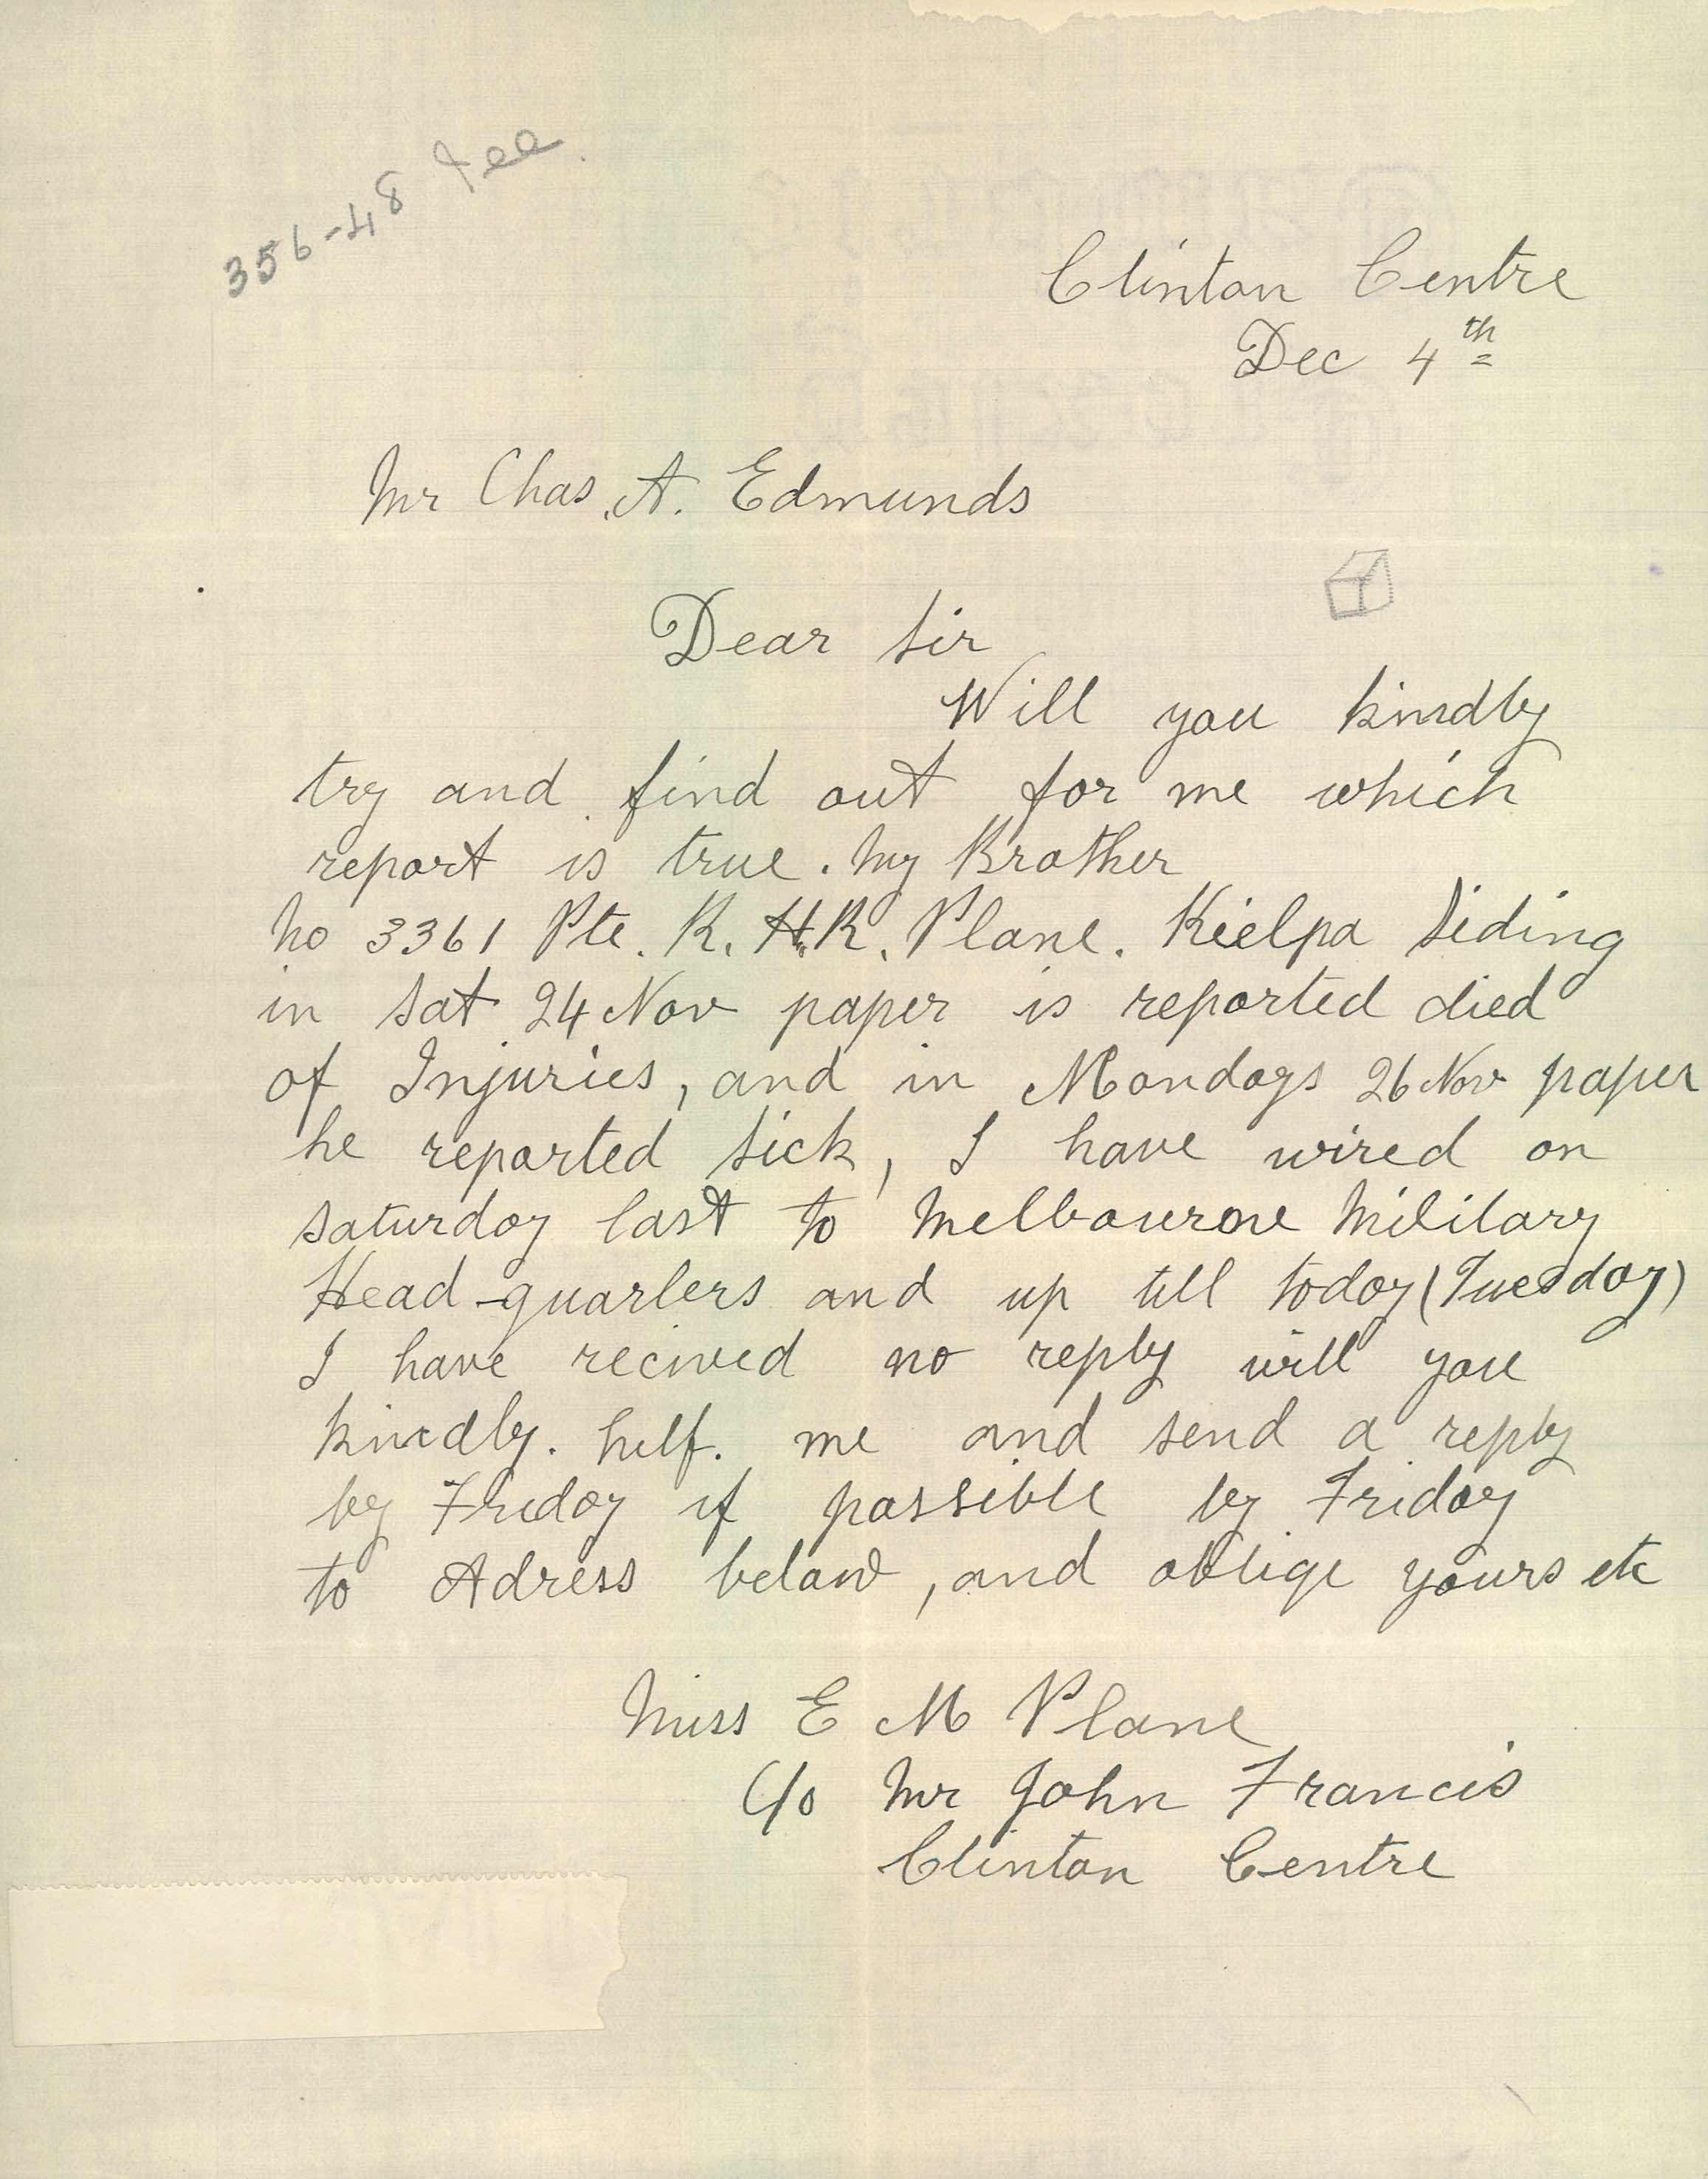 356-48 fee.
Clinton Centre
Dec 4th
Mr Chas. A. Edmunds
Dear Sir
Will you kindly
try and find out for me which
report is true. My Brother
No 3361 Pte. R. H. R. Plane. Kielpa Siding
in Sat 24 Nov paper is reported died
of Injuries, and in Mondays 26 Nov paper
he reported sick, I have wired on
saturday last to Melbourne Military
Head-quarters and up till today (Tuesday)
I have recived no reply will you
kindly. help. me and send a reply
by Friday if possible by Friday
to Adress below, and oblige yours etc
Miss E M Plane
C/o Mr John Francis
Clinton Centre